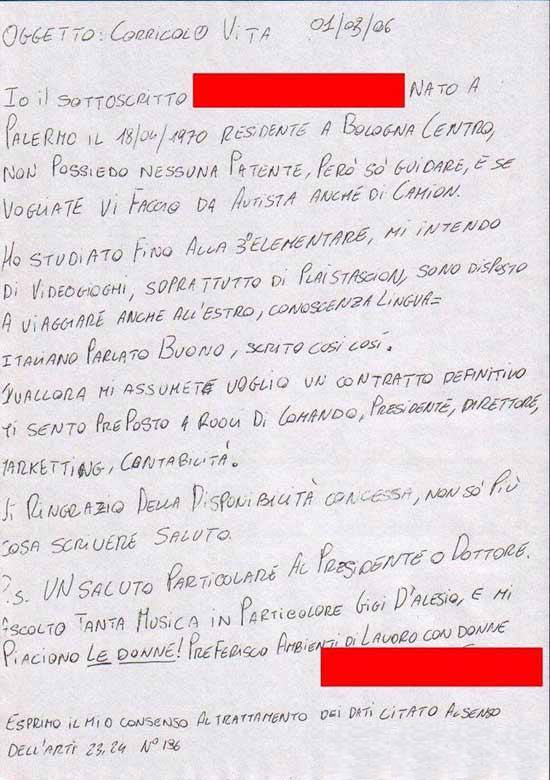 OGGETTO: CORRICOLO VITA 01/03/06
IO IL SOTTOSCRITTO NATO A
PALERMO IL 18/04/1970 RESIDENTE A BOLOGNA CENTRO,
NON POSSIEDO NESSUNA PATENTE, PERÒ SÒ GUIDARE, E SE
VOGLIATE VI FACCIO DA AUTISTA ANCHE DI CAMION.
HO STUDIATO FINO ALLA 3° ELEMENTARE, MI INTENDO
DI VIDEOGIOGHI, SOPRATTUTTO DI PLAISTASCION, SONO DISPOSTO
A VIAGGIARE ANCHE ALL'ESTRO, CONOSCENZA LINGUA=
ITALIANO PARLATO BUONO, SCRITO COSI COSÍ.
QUALLORA MI ASSUMETE VOGLIO UN CONTRATTO DEFINITIVO
MI SENTO PREPOSTO A ROOLI DI COMANDO, PRESIDENTE, DIRETTORE,
MARKETTING, CONTABILITÀ.
VI RINGRAZIO DELLA DISPONIBILITÀ CONCESSA, NON SÒ PIÙ
COSA SCRIVERE SALUTO.
P.S. UN SALUTO PARTICOLARE AL PRESIDENTE O DOTTORE.
ASCOLTO TANTA MUSICA IN PARTICOLORE GIGI D'ALESIO, E MI
PIACIONO LE DONNE! PREFERISCO AMBIENTI DI LAVORO CON DONNE
ESPRIMO IL MIO CONSENSO AL TRATTAMENTO DEI DATI CITATO AL SENSO
DELL'ARTI 23,24 N° 196